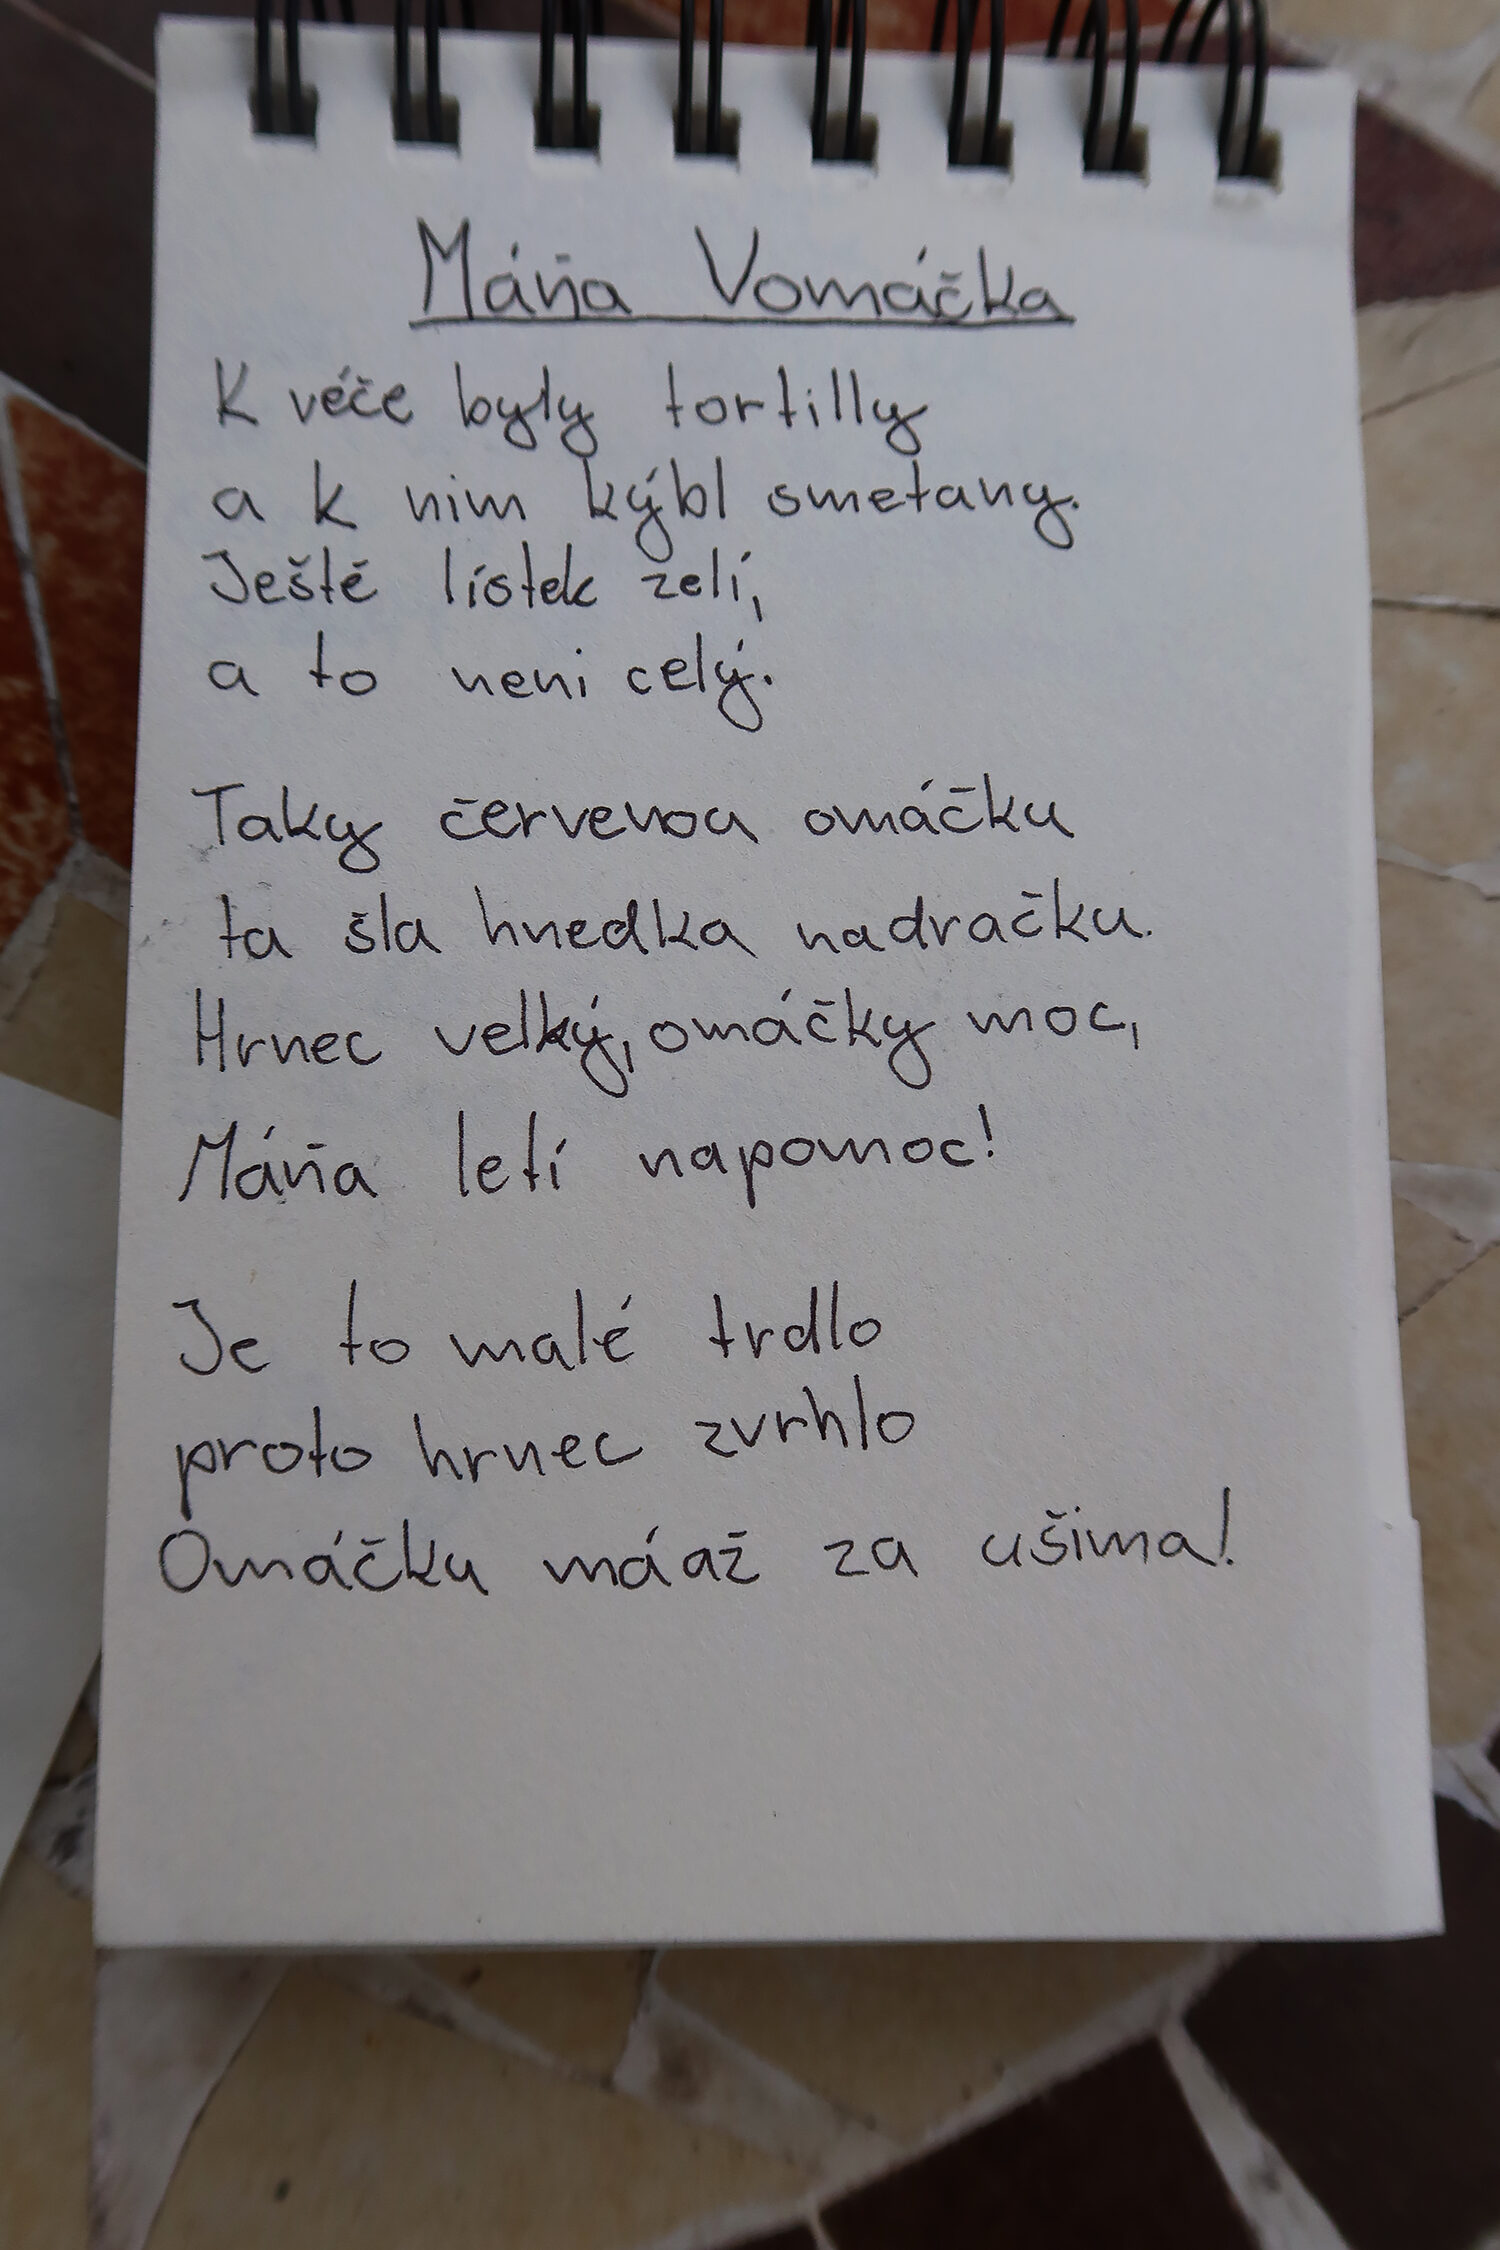 Máňa Vomáčka
K véče byly tortilly
a k nim kýbl smetany.
Ještě lístek zelí,
a to neni celý.
Taky červenou omáčku
ta šla hnedka nadračku.
Hrnec velký, omáčky moc,
Máňa letí napomoc!
Je to malé trdlo
proto hrnec zvrhlo
Omáčku má až za ušima!